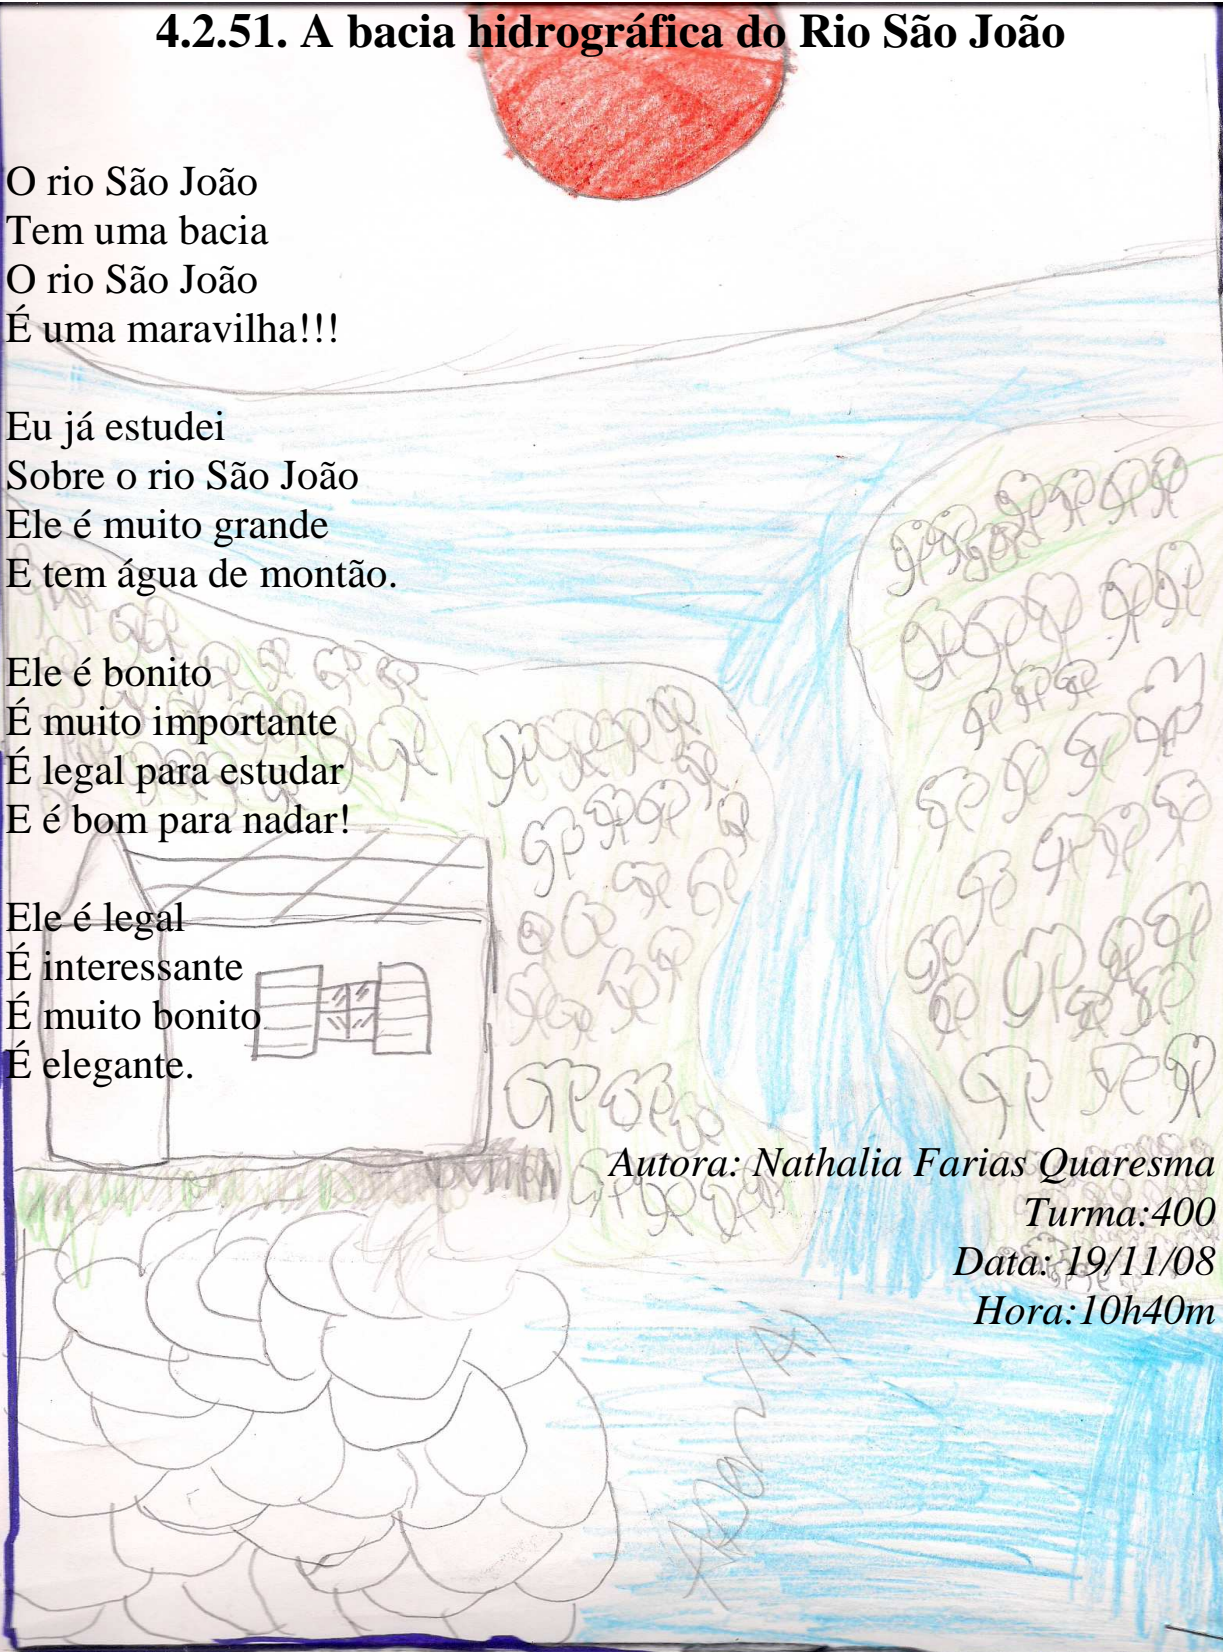 4.2.51. A bacia hidrográfica do Rio São João
O rio São João
Tem uma bacia
O rio São João
É uma maravilha!!!
Eu já estudei
Sobre o rio São João
Ele é muito grande
E tem água de montão.
Ele é bonito
É muito importante
É legal para estudar
E é bom para nadar!
Ele é legal
É interessante
É muito bonito
É elegante.
Autora: Nathalia Farias Quaresma
Turma:400
Data: 19/11/08
Hora:10h40m